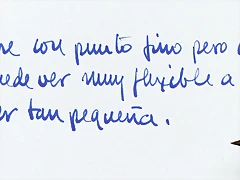 re con punto fino pero
uede ver muy flexible a
er tan pequeña.